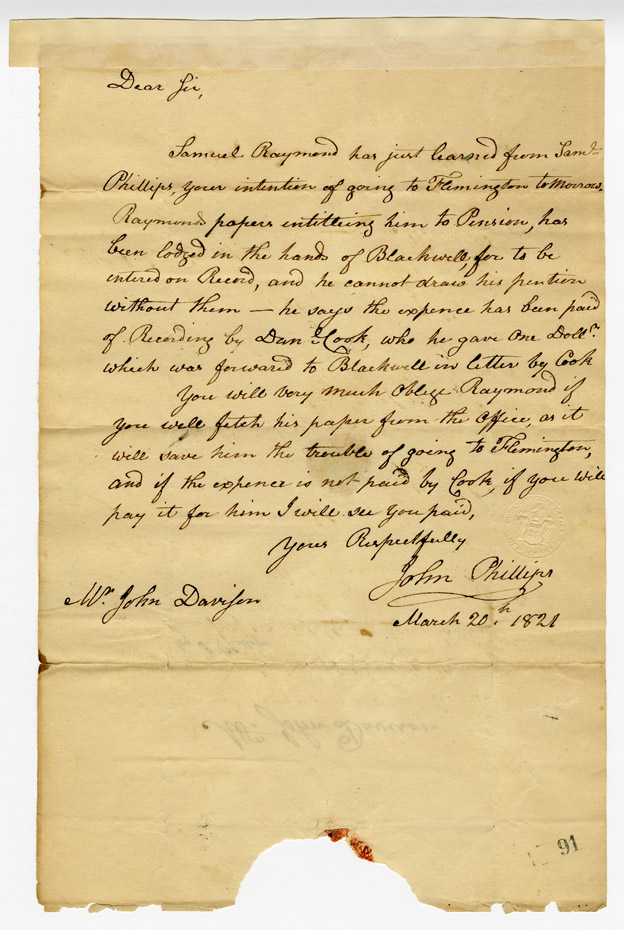 Dear Sir,
Samuel Raymond has just learned from Saml.
Phillips, your intention of going to Flemington to Morrow.
Raymonds papers intitleing him to Pension, has
been lodged in the hands of Blackwell, for to be
intered on Record, and he cannot draw his pention
without them — he says the expence has been paid
of Recording by Danl. Cook, who he gave One Dollr.
which was forward to Blackwell in letter by Cook
You will very much Oblige Raymond if
you will fetch his paper from the Office, as it
will save him the trouble of going to Flemington,
and if the expence is not paid by Cook, if you will
pay it for him I will see you paid,
Yours Respectfully
John Phillips
Mr. John Davison
March 20th. 1821
Mr. John Davison
91